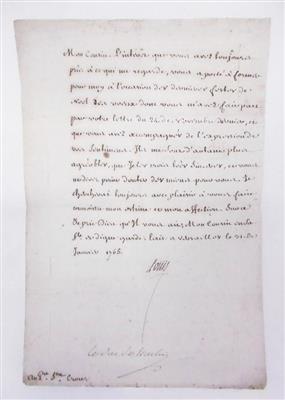 Mon Cousin. L'interêt que vous avez toujours
pris à ce qui me regarde, vous a porté à former
pour moy à l'occasion des dernieres festes de
Noel des voeux dont vous m'avez fait part
par votre lettre du 24 de novembre dernier, et
que vous avez accompagnés de l'expression de
vos sentimens. Ils me sont d'autant plus
agréables, que Je les crois sinceres, et vous
ne devez point douter des miens pour vous. Je
chercherai toujours avec plaisir à vous faire
connoitre mon estime et mon affection. Sur ce
Je prie Dieu qu'Il vous ait, Mon Cousin en sa
Ste et digne garde. Ecrit à Versailles le
Janvier 1765.
Louis